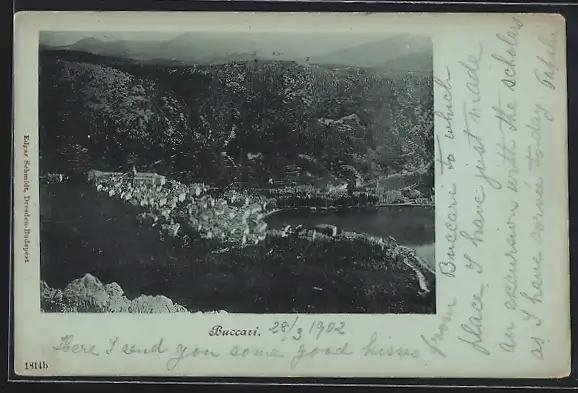 Edgar Schmidt, Dresden-Budapest
Buccari. 28/3 1902
Here I send you some good kisses from Buccari to which
place I have just made
an excursion with the scholars
as I have to day
1814b